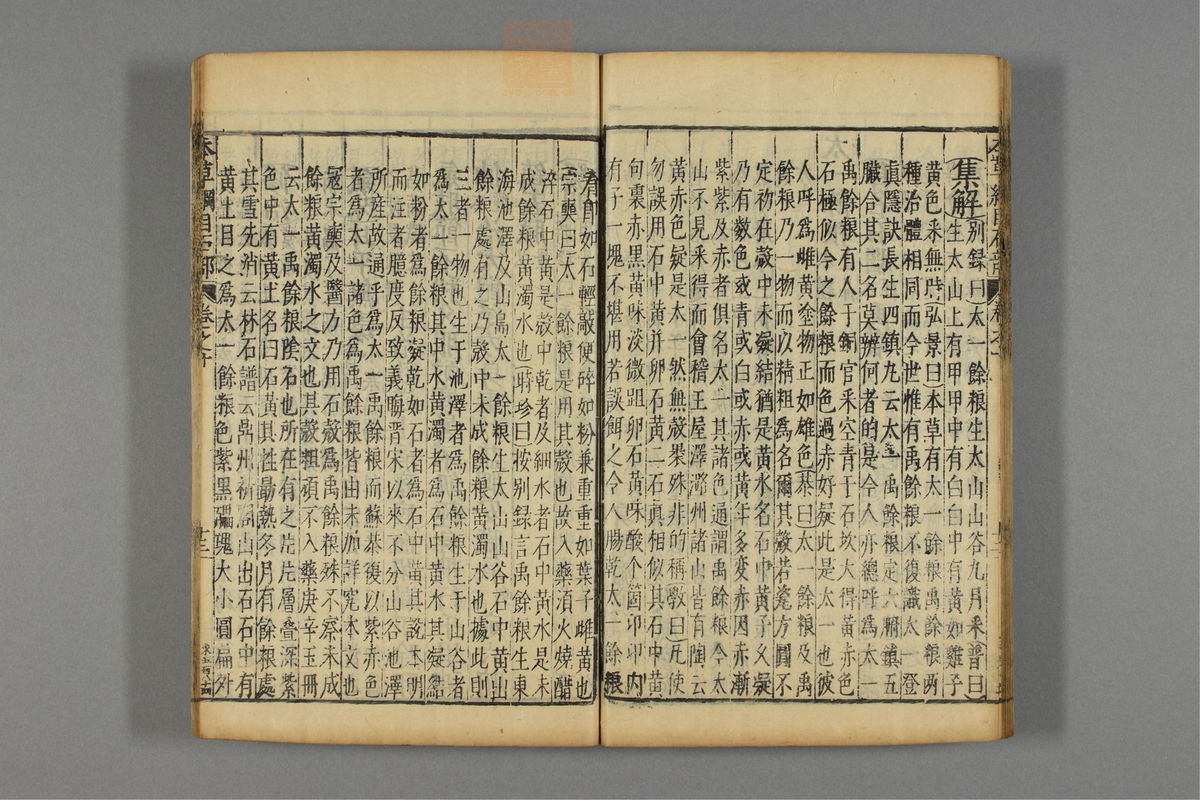 集解別錄曰太一餘粮生太山山谷九月采普曰
生太山上有甲甲中有白白中有黃如雞子
黃色采無時弘景曰本草有太一餘粮禹餘粮兩
種治體相同而今世惟有禹餘粮不復識太一登
眞隱訣長生四鎮丸云太一禹餘粮定六腑鎮五
臟合其二名莫辨何者的是今人亦總呼爲太一
禹餘粮有人于銅官采空青于石坎大得黃赤色
石極似今之餘粮而色過赤好疑此是太一也彼
人呼爲雌黃塗物正如雄色恭曰太一餘粮及禹
餘粮乃一物而以精粗爲名爾其殼若瓷方圓不
定初在殼中未凝結猶是黃水名石中黃子久凝
乃有數色或青或白或赤或黃年多變赤因赤漸
紫紫及赤者俱名太一其諸色通謂禹餘粮今太
山不見采得而會稽王屋澤潞州諸山皆有陶云
黃赤色疑是太一然無殼裹殊非的稱斅曰凡使
勿誤用石中黃并卵石黃二石真相似其石中黃
向裏赤黑黃味淡微跙卵石黃味酸个个卵卵內
有子一塊不堪用若誤餌之令人腸乾太一餘粮
看即如石輕敲便碎如粉兼重重如葉子雌黃也
宗奭曰太一餘粮是用其殼也故入藥須火燒醋
淬石中黃是殼中乾者及細末者石中黃水是未
成餘粮黃濁水也時珍曰按别録言禹餘粮生東
海池澤及山島太一餘粮生太山山谷石中黃出
餘粮處有之乃殼中未成餘粮黃濁水也據此則
三者一物也生于池澤者爲禹餘粮生于山谷者
爲太一餘粮其中水黃濁者爲石中黃水其凝結
如粉者爲餘粮凝乾如石者爲石中黃其說本明
而注者臆度反致義晦晋宋以來不分山谷池澤
所産故通乎爲太一禹餘粮而蘇恭復以紫赤色
者爲太一諸色爲禹餘粮皆由未加詳究本文也
寇宗奭及醫方乃用石殼爲禹餘粮殊不察未成
餘粮黃濁水之文也其殼粗頑不入藥庚辛玉冊
云太一禹餘粮陰石也所在有之片片層叠深紫
色中有黃土名曰石黃其性最熱冬月有餘粮處
其雪先消云林石譜云鼎州祈閣山出石石中有
黃土目之爲太一餘粮色紫黑礧磈大小圓扁外
本草綱目石部 卷之十 廿三